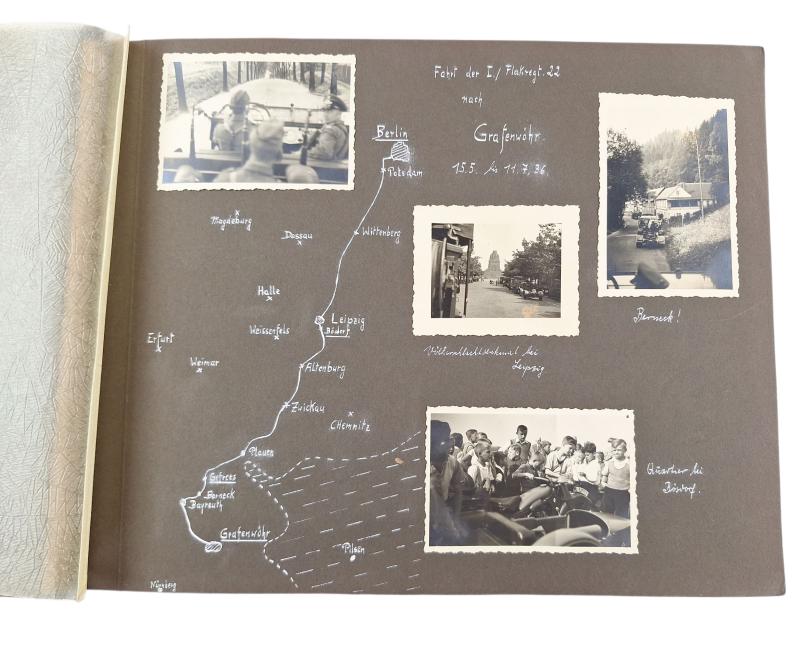 Fahrt der I./ Flakregt. 22
nach
Grafenwöhr.
15.5. bis 11.7.36.
Berlin
Potsdam
Magdeburg
Dessau
Wittenberg
Halle
Leipzig
Bösdorf.
Weissenfels
Erfurt
Weimar
Altenburg
Zwickau
Chemnitz
Plauen
Gefrees
Berneck
Bayreuth
Grafenwöhr
Pilsen
Nürnberg
Berneck!
Völkerschlachtdenkmal bei
Leipzig
Quartier bei
Bösdorf.